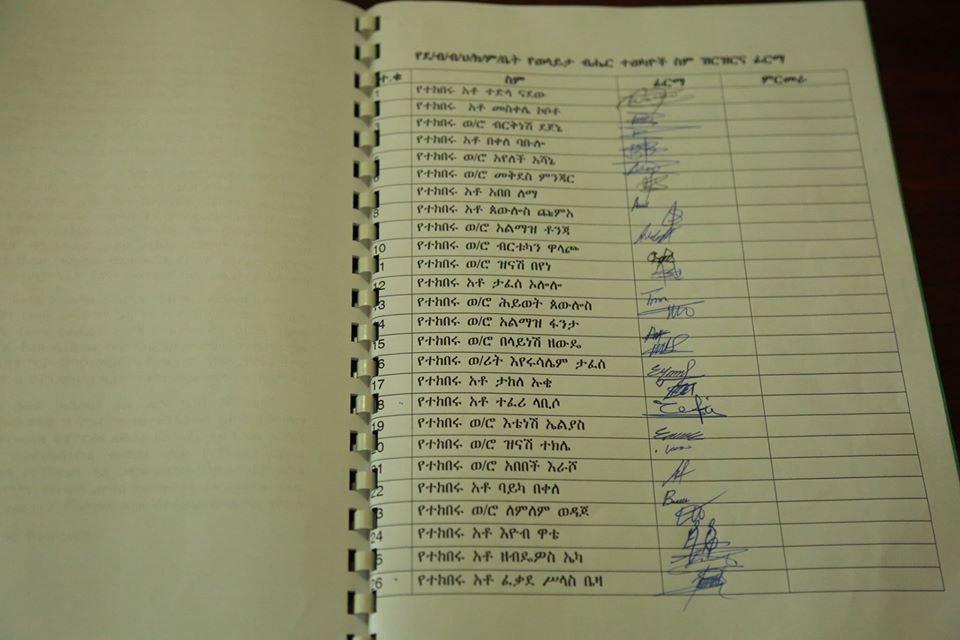 የደ/ብ/ብ/ህ/ክ/ም/ቤት የወላይታ ብሔር ተወካዮች ስም ዝርዝርና ፊርማ
ተ.ቁ ስም ፊርማ ምርመራ
1 የተከበሩ አቶ ተድላ ናደው
የተከበሩ አቶ መስቀሌ ኮቦቶ
3 የተከበሩ ወ/ሮ ብርቅነሽ ደጀኔ
የተከበሩ አቶ በቀለ ባቡሎ
የተከበሩ ወ/ሮ አየለች አሻኔ
የተከበሩ ወ/ሮ መቅደስ ምንጃር
የተከበሩ አቶ አበበ ለማ
8 የተከበሩ አቶ ጳውሎስ ጩምአ
የተከበሩ ወ/ሮ አልማዝ ቶንጃ
10 የተከበሩ ወ/ሮ ብርቱካን ዋላጮ
11 የተከበሩ ወ/ሮ ዝናሽ በየነ
12 የተከበሩ አቶ ታፈሰ ኦሎሎ
13 የተከበሩ ወ/ሮ ሕይወት ጳውሎስ
14 የተከበሩ ወ/ሮ አልማዝ ፋንታ
15 የተከበሩ ወ/ሮ በላይነሽ ዘውዴ
16 የተከበሩ ወ/ሪት እየሩሳሌም ታፈሰ
17 የተከበሩ አቶ ታከለ ኡቄ
18 የተከበሩ አቶ ተፈሪ ላቢሶ
19 የተከበሩ ወ/ሮ እቴነሽ ኤልያስ
20 የተከበሩ ወ/ሮ ዝናሽ ተክሌ
21 የተከበሩ ወ/ሮ አበበች እራሾ
22 የተከበሩ አቶ ባይካ በቀለ
23 የተከበሩ ወ/ሮ ለምለም ወዳጆ
24 የተከበሩ አቶ እዮብ ዋቴ
25 የተከበሩ አቶ ዘብዴዎስ ኤካ
26 የተከበሩ አቶ ፈቃደ ሥላስ ቤዛ